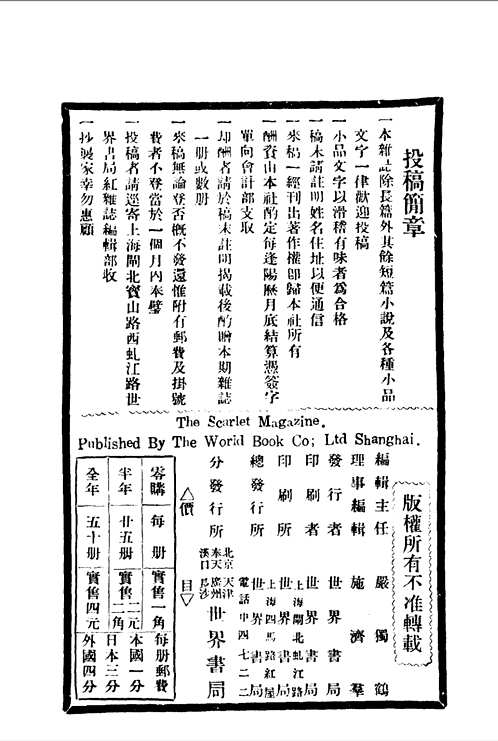 投稿簡章
一本雜誌除長篇外其餘短篇小說及各種小品
文字一律歡迎投稿
一小品文字以滑稽有味者為合格
一稿末請註明姓名住址以便通信
一來稿一經刊出著作權卽歸本社所有
一酬資由本社酌定每逢陽曆月底結算憑簽字
單向會計部支取
一却酬者請於稿末註明揭載後酌贈本期雜誌
一册或數册
一來稿無論登否概不發還惟附有郵費及掛號
費者不登當於一個月內奉璧
一投稿者請逕寄上海閘北寶山路西虬江路世
界書局紅雜誌編輯部收
一抄襲家幸勿惠顧
The Scarlet Magazine.
Published By The World Book Co; Ltd Shanghai.
版權所有不准轉載
編輯主任 嚴獨鶴
理事編輯 施濟羣
發行者 世界書局
印刷者 世界書局
印刷所 上海閘北虬江路 世界書局
總發行所 上海四馬路紅屋 世界書局 電話中四七二二
分發行所 北京 天津 奉天 廣州 漢口 長沙 世界書局
△價目▽
零購 每册 實售一角 每册郵費
半年 廿五册 實售二元二角 本國一分 日本三分
全年 五十册 實售四元 外國四分